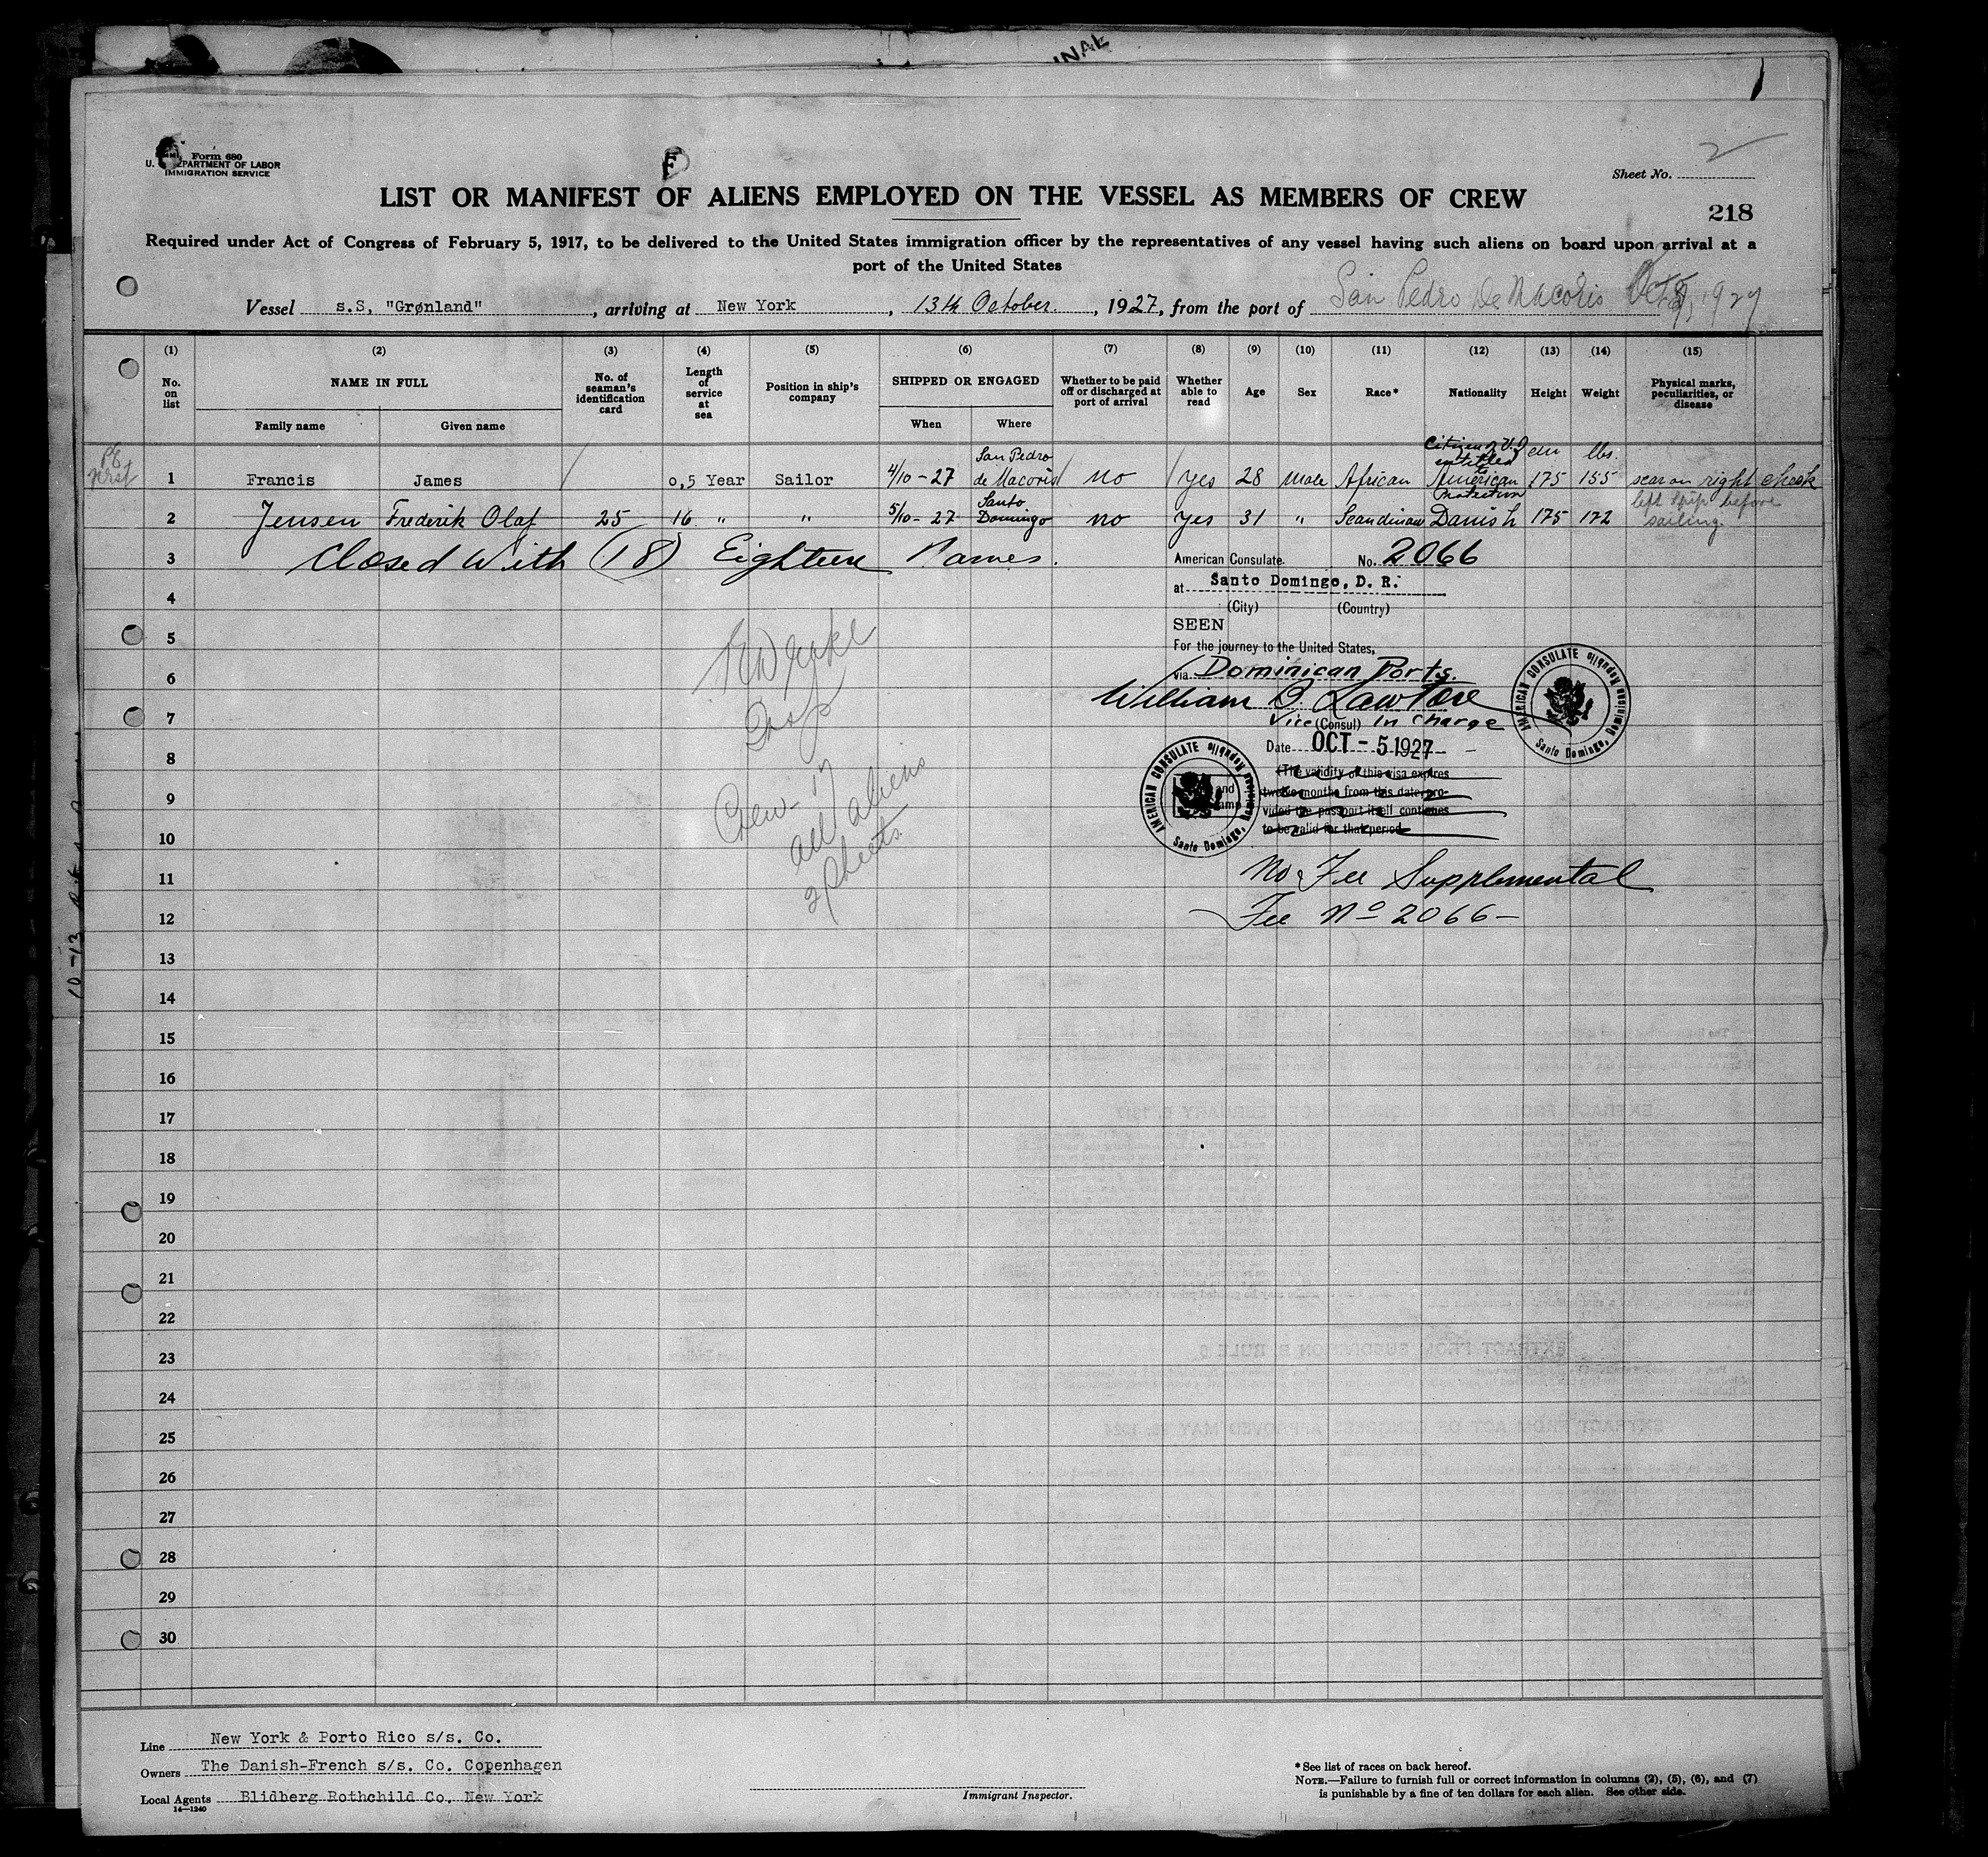 INAL
Form 680
U. DEPARTMENT OF LABOR
IMMIGRATION SERVICE
F
Sheet No. 2
LIST OR MANIFEST OF ALIENS EMPLOYED ON THE VESSEL AS MEMBERS OF CREW
218
Required under Act of Congress of February 5, 1917, to be delivered to the United States immigration officer by the representatives of any vessel having such aliens on board upon arrival at a
port of the United States
Vessel s.S, "Grønland", arriving at New York, 13th October., 1927, from the port of San Pedro De Macoris Oct 1927
(1) (2) (3) (4) (5) (6) (7) (8) (9) (10) (11) (12) (13) (14) (15)
No. on list
NAME IN FULL
Family name Given name
No. of seaman's identification card
Length of service at sea
Position in ship's company
SHIPPED OR ENGAGED
When Where
Whether to be paid off or discharged at port of arrival
Whether able to read
Age
Sex
Race*
Nationality
Height
Weight
Physical marks, peculiarities, or disease
1 Francis James 0,5 Year Sailor 4/10-27 San Pedro de Macoris no yes 28 Male African Citizen of U.S entitled to American 175 155 lbs. scar on right cheek
2 Jensen Frederik Olaf 25 16 " " 5/10-27 Santo Domingo no yes 31 " Scandinav Danish 175 172 left ship before sailing.
3 Closed With (18) Eighteen Names.
4
5
6
7
8
9
10
11
12
13
14
15
16
17
18
19
20
21
22
23
24
25
26
27
28
29
30
American Consulate. No. 2066
at Santo Domingo, D. R.
(City) (Country)
SEEN
For the journey to the United States,
via Dominican Ports.
William B. Lawton
Vice (Consul) In Charge
Date OCT - 5 1927
(The validity of this visa expires
twelve months from this date, pro-
vided the passport itself continues
to be valid for that period
AMERICAN CONSULATE Dominican Republic Santo Domingo,
AMERICAN CONSULATE Dominican Republic Santo Domingo,
No Fee Supplemental
Fee No 2066-
Insp
Crew-17
all aliens
2 sheets.
10-13
Line New York & Porto Rico s/s. Co.
Owners The Danish-French s/s. Co. Copenhagen
Local Agents Blidberg Rothchild Co. New York
14—1240
Immigrant Inspector.
*See list of races on back hereof.
NOTE.—Failure to furnish full or correct information in columns (2), (5), (6), and (7)
is punishable by a fine of ten dollars for each alien. See other side.